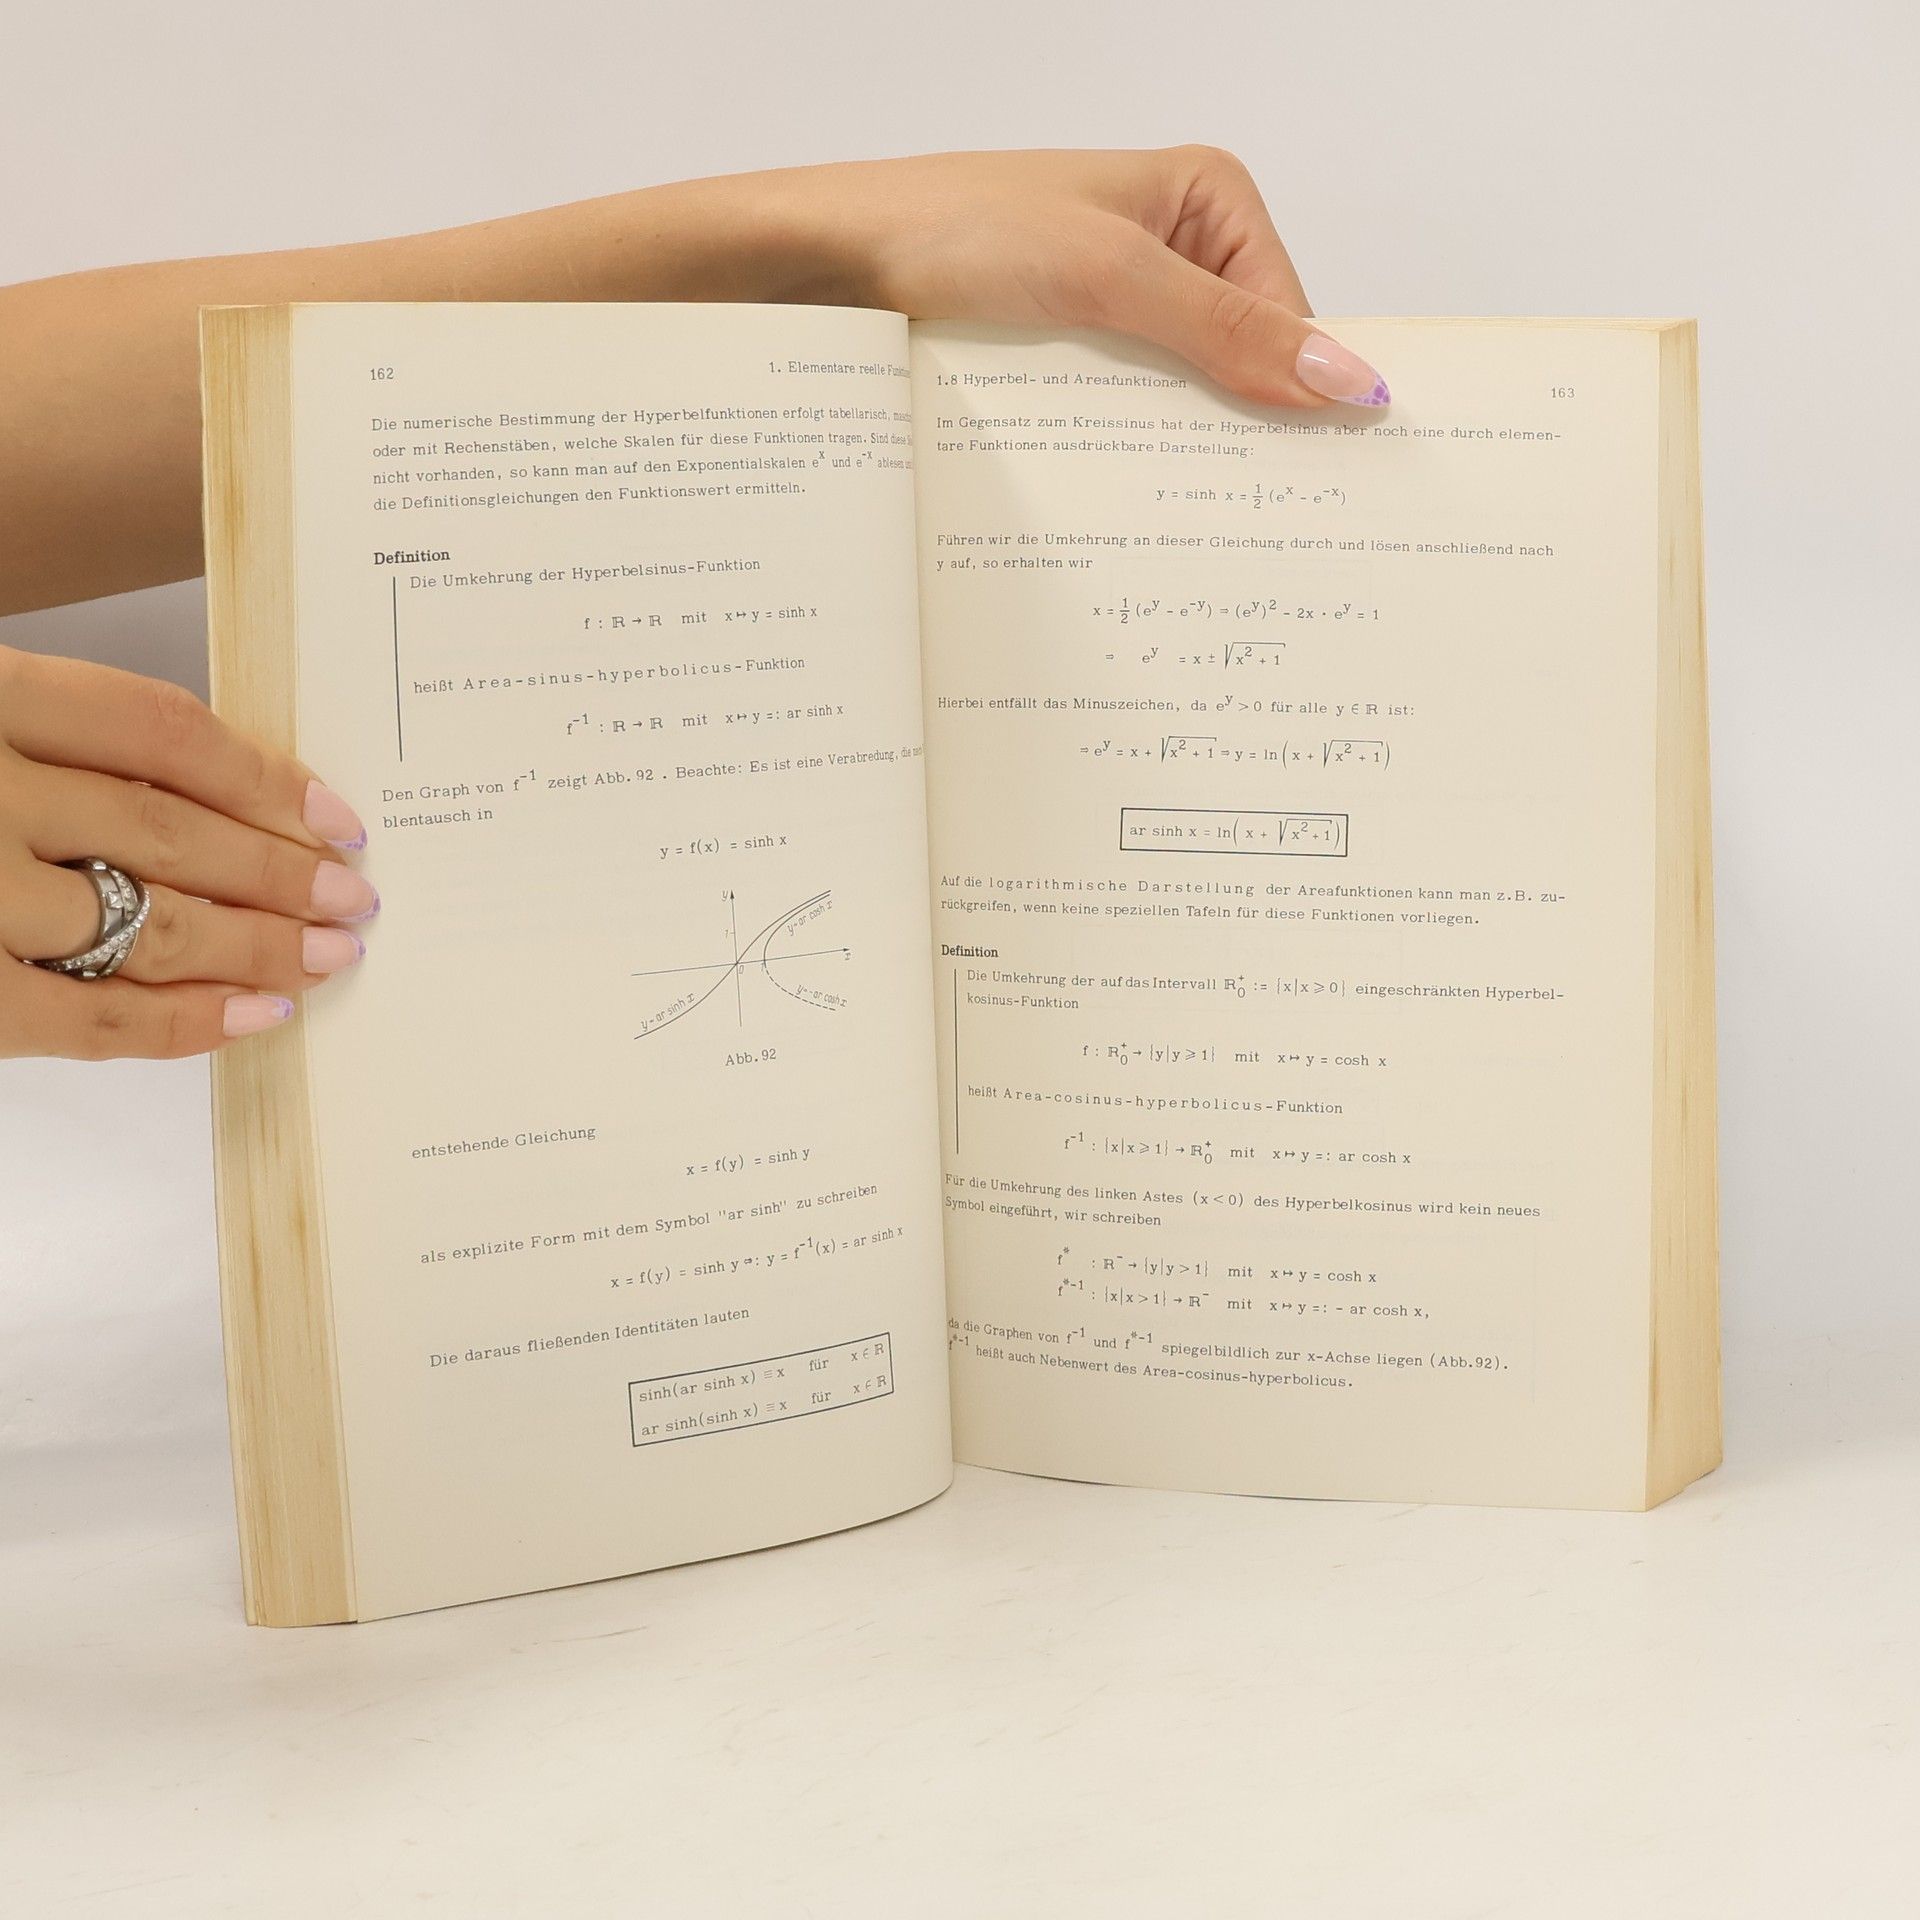 162
1. Elementare reelle
Die numerische Bestimmung der Hyperbelfunktionen erfolgt tabellarisch,
oder mit Rechenstäben, welche Skalen für diese Funktionen tragen. Sind diese
nicht vorhanden, so kann man auf den Exponentialskalen eˣ und e⁻ˣ ablesen
die Definitionsgleichungen den Funktionswert ermitteln.
Definition
Die Umkehrung der Hyperbelsinus-Funktion
f : ℝ → ℝ mit x ↦ y = sinh x
heißt Area-sinus-hyperbolicus-Funktion
f⁻¹ : ℝ → ℝ mit x ↦ y =: ar sinh x
Den Graph von f⁻¹ zeigt Abb. 92 . Beachte: Es ist eine Verabredung, die
blentausch in
y = f(x) = sinh x
y
y=ar cosh x
1
x
0
1
y=-ar cosh x
y=ar sinh x
Abb. 92
entstehende Gleichung
x = f(y) = sinh y
als explizite Form mit dem Symbol "ar sinh" zu schreiben
x = f(y) = sinh y ⇔: y = f⁻¹(x) = ar sinh x
Die daraus fließenden Identitäten lauten
sinh(ar sinh x) ≡ x für x ∈ ℝ
ar sinh(sinh x) ≡ x für x ∈ ℝ
1.8 Hyperbel- und Areafunktionen
163
Im Gegensatz zum Kreissinus hat der Hyperbelsinus aber noch eine durch elemen-
tare Funktionen ausdrückbare Darstellung:
y = sinh x = 1/2 (eˣ - e⁻ˣ)
Führen wir die Umkehrung an dieser Gleichung durch und lösen anschließend nach
y auf, so erhalten wir
x = 1/2 (eʸ - e⁻ʸ) ⇒ (eʸ)² - 2x · eʸ = 1
⇒ eʸ = x ± √(x² + 1)
Hierbei entfällt das Minuszeichen, da eʸ > 0 für alle y ∈ ℝ ist:
⇒ eʸ = x + √(x² + 1) ⇒ y = ln(x + √(x² + 1))
ar sinh x = ln(x + √(x² + 1))
Auf die logarithmische Darstellung der Areafunktionen kann man z.B. zu-
rückgreifen, wenn keine speziellen Tafeln für diese Funktionen vorliegen.
Definition
Die Umkehrung der auf das Intervall ℝ₀⁺ := {x|x ⩾ 0} eingeschränkten Hyperbel-
kosinus-Funktion
f : ℝ₀⁺ → {y|y ⩾ 1} mit x ↦ y = cosh x
heißt Area-cosinus-hyperbolicus-Funktion
f⁻¹ : {x|x ⩾ 1} → ℝ₀⁺ mit x ↦ y =: ar cosh x
Für die Umkehrung des linken Astes (x < 0) des Hyperbelkosinus wird kein neues
Symbol eingeführt, wir schreiben
f* : ℝ⁻ → {y|y > 1} mit x ↦ y = cosh x
f*⁻¹ : {x|x > 1} → ℝ⁻ mit x ↦ y =: - ar cosh x,
da die Graphen von f⁻¹ und f*⁻¹ spiegelbildlich zur x-Achse liegen (Abb. 92).
f*⁻¹ heißt auch Nebenwert des Area-cosinus-hyperbolicus.